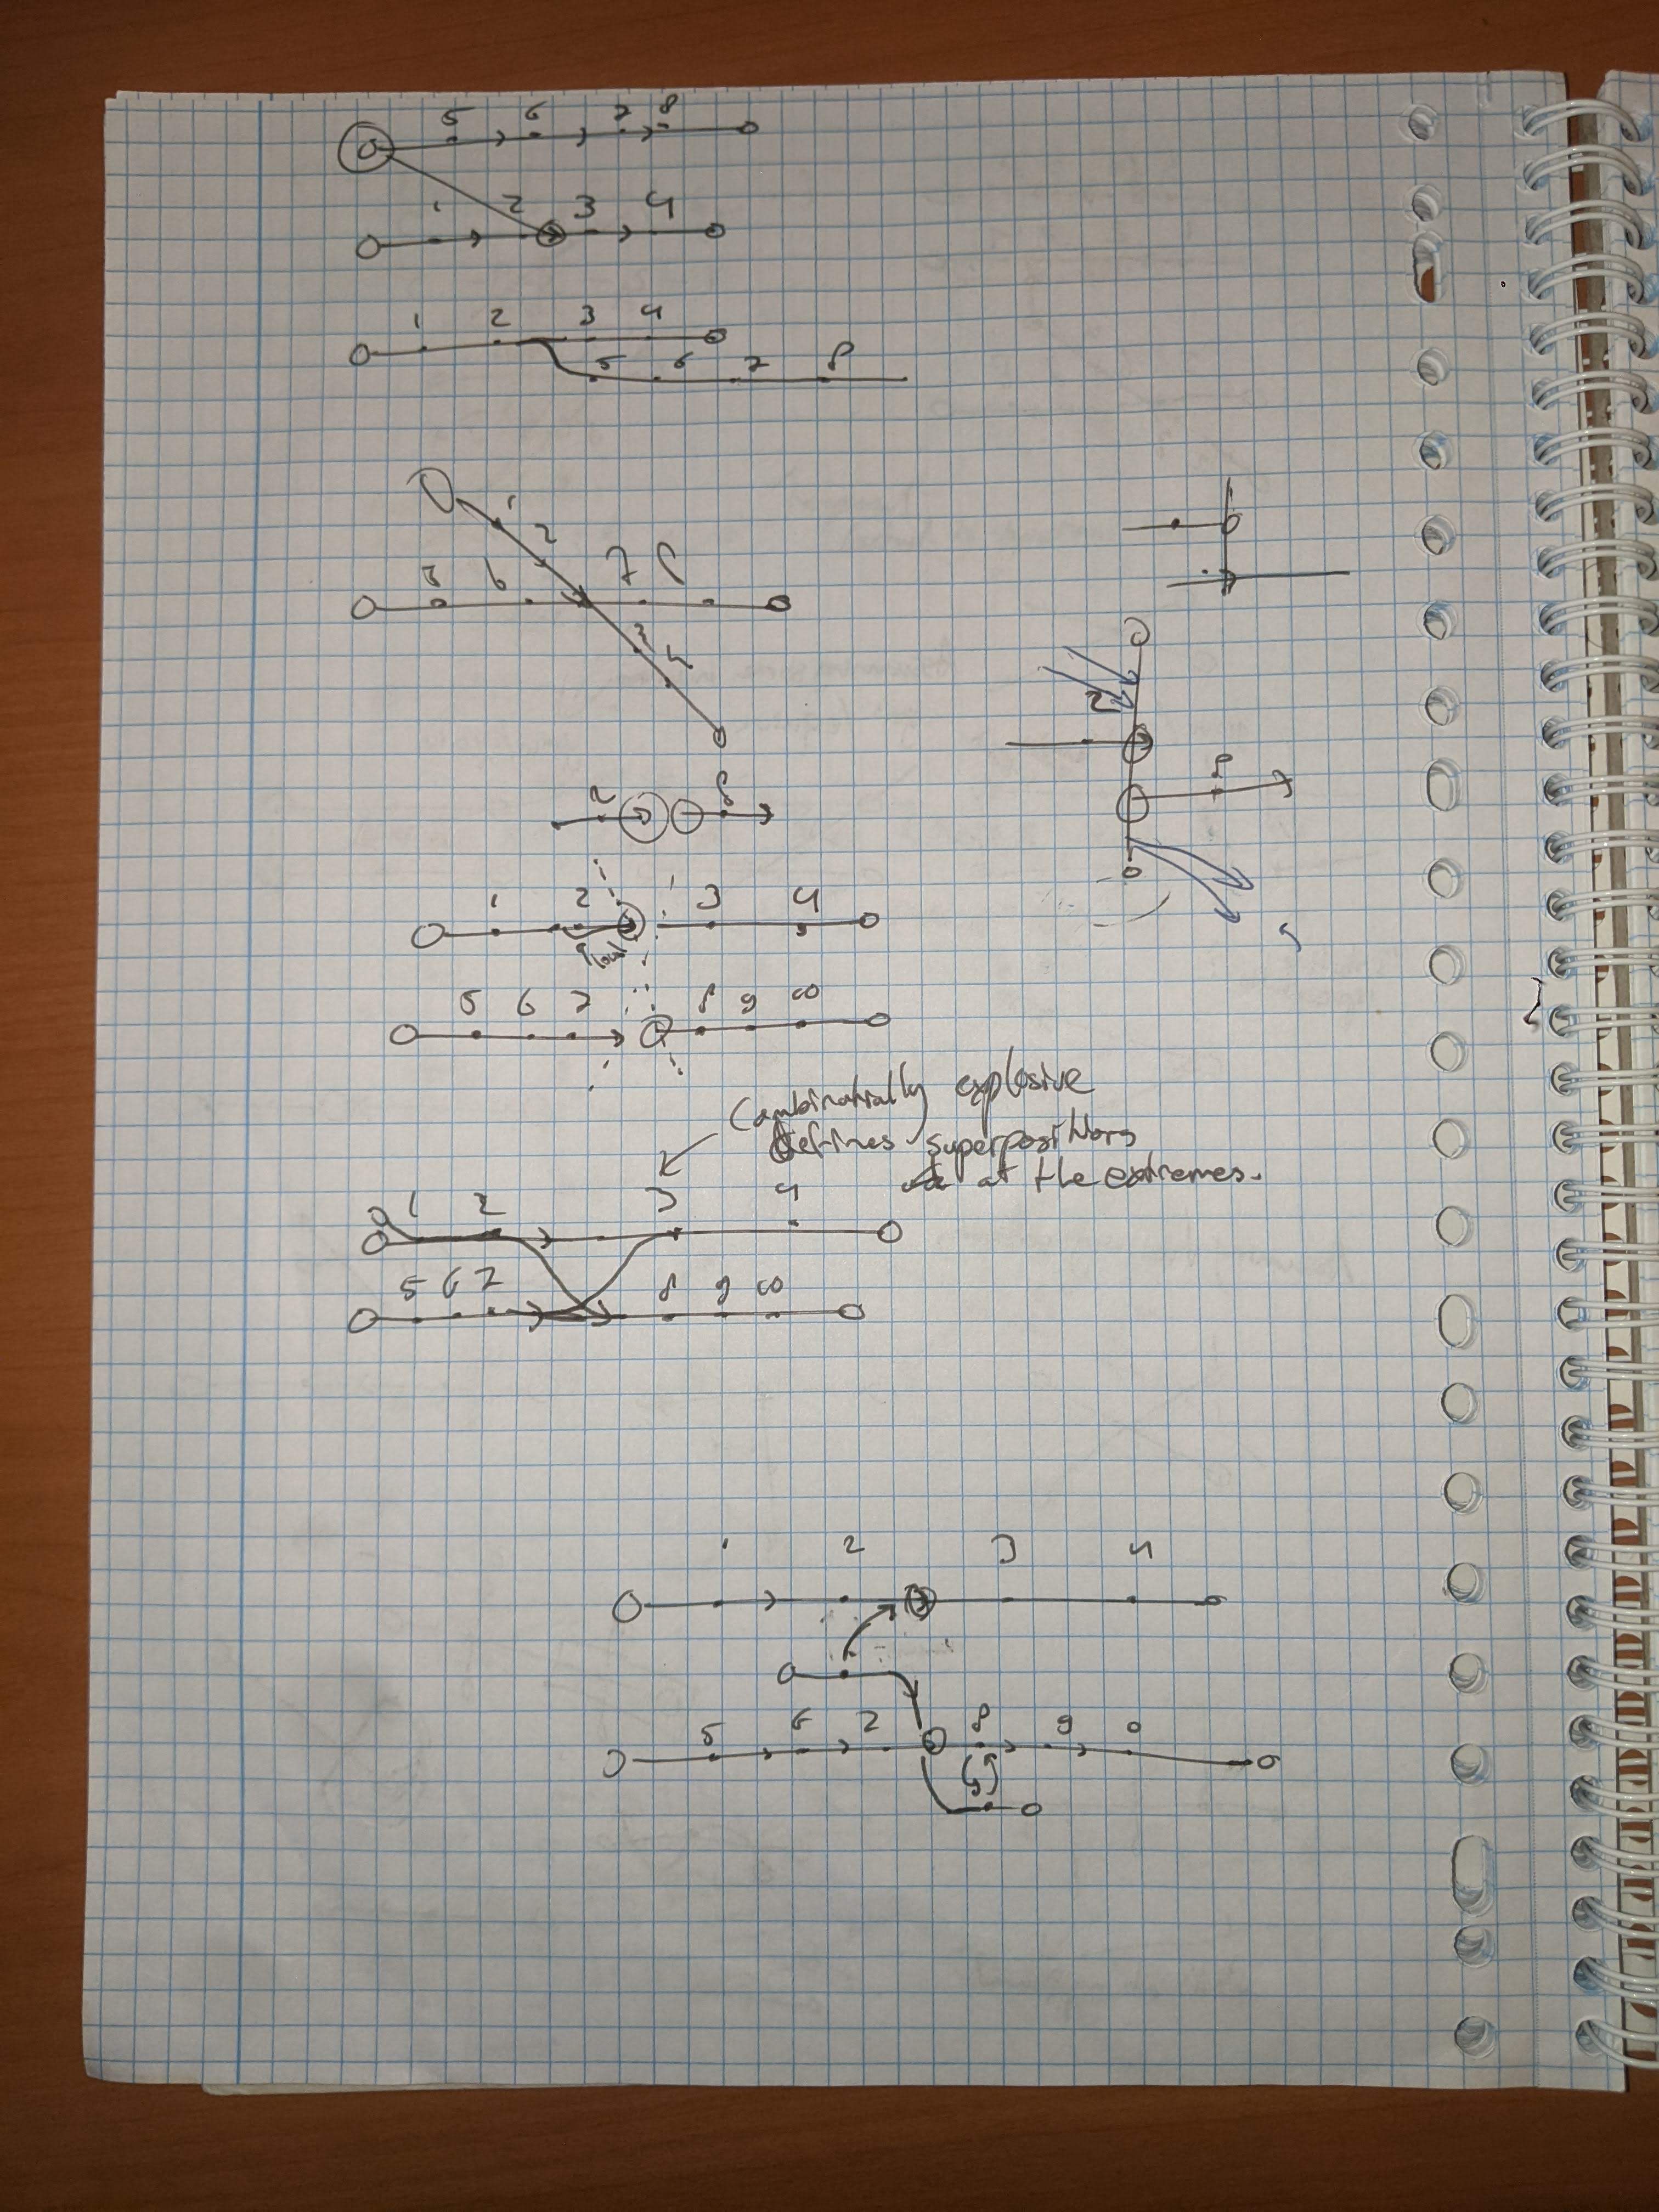 5 6 7 8
1 2 3 4
1 2 3 4
5 6 7 8
1
2
5 6 7 8
3
4
2
2 8
8
1 2 3 4
5 6 7 8 9 10
Combinatrially explosive
defines superpositions
at the extremes.
1 2 3 4
5 6 7 8 9 10
1 2 3 4
5 6 7 8 9 0